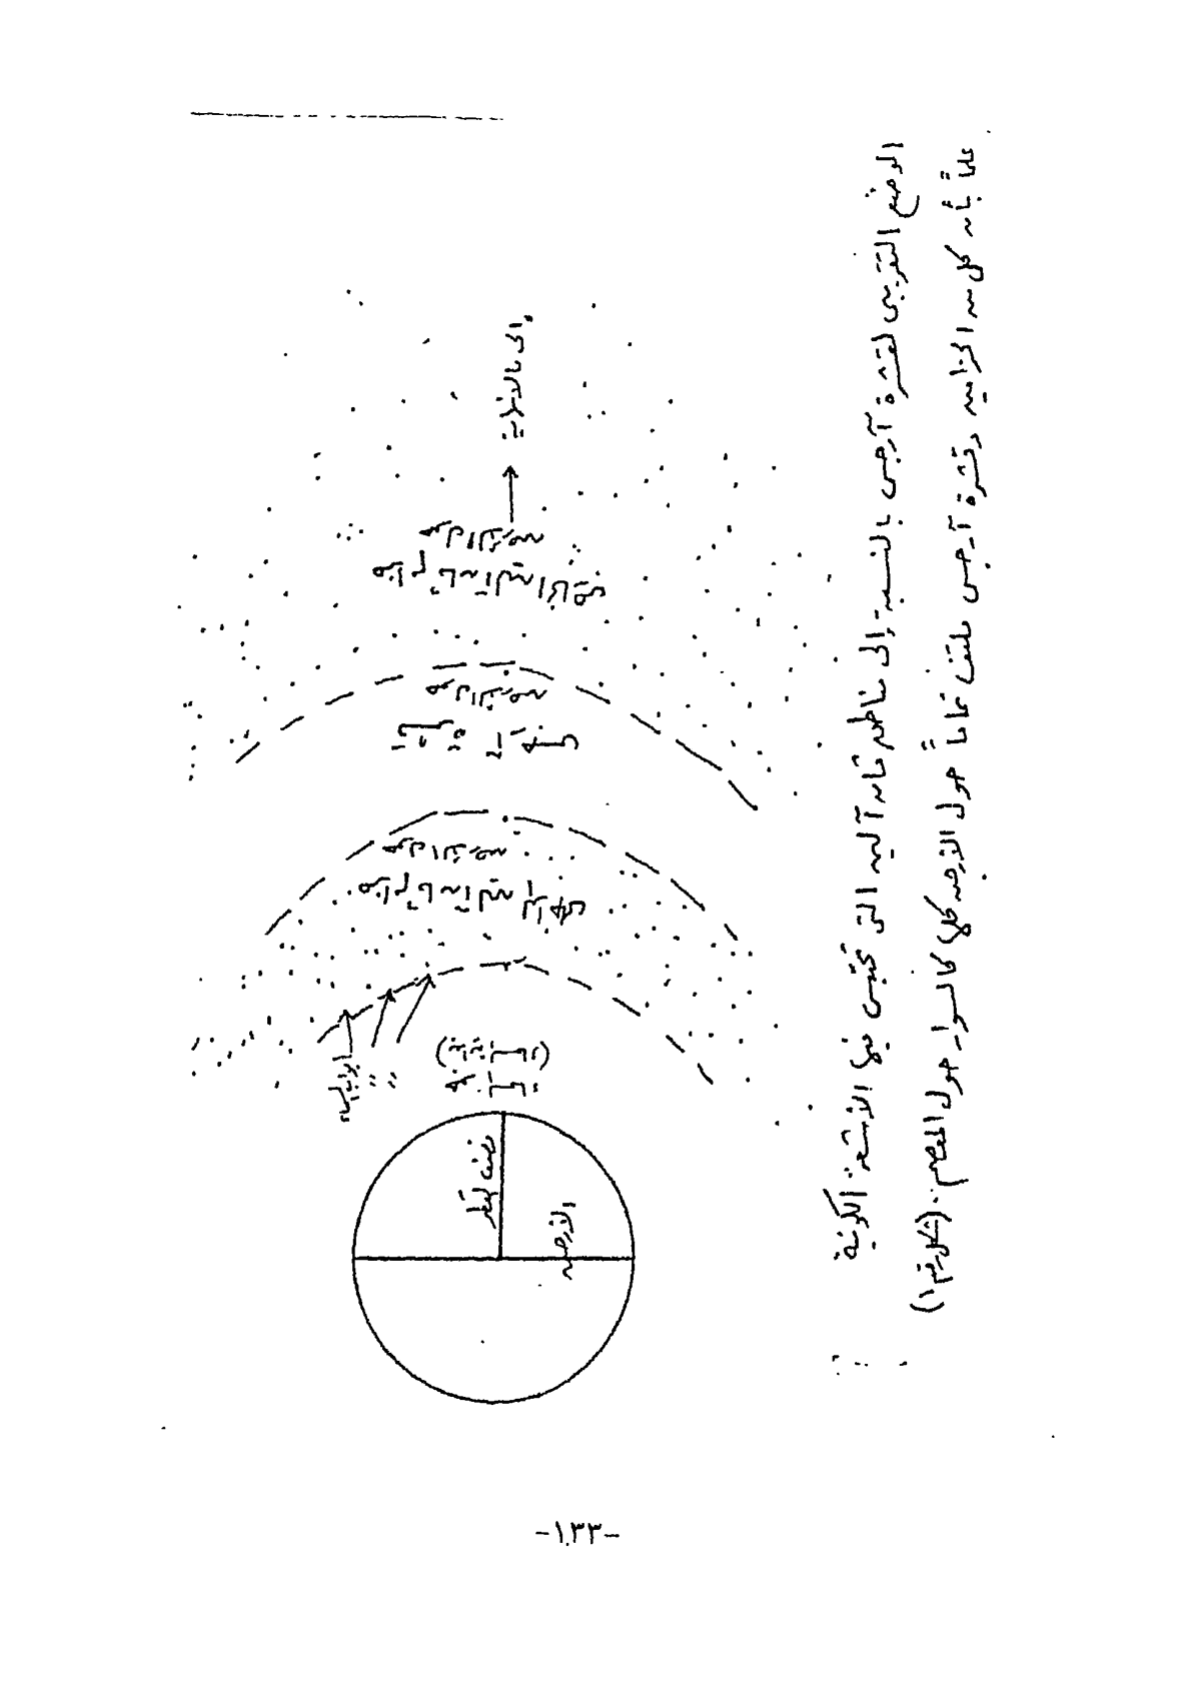 إلى مالانهاية
حول الأرض
حزام ڤان آلين الخارجي
حول الأرض
قشرة آرجس
حول الأرض
حزام ڤان آلين الداخلي
(أمانة)
نصف القطر
الأرض
الوضع التقريبى لقشرة آرجس بالنسبة إلى مناطق ڤان آلين التى تحتبس فيها الأشعة الكونية
علماً بأن كل من الحزامين وقشرة آرجس ملتف تماماً حول الأرض كلها كالسوار حول المعصم. (شكل رقم ١)
-١٣٣-